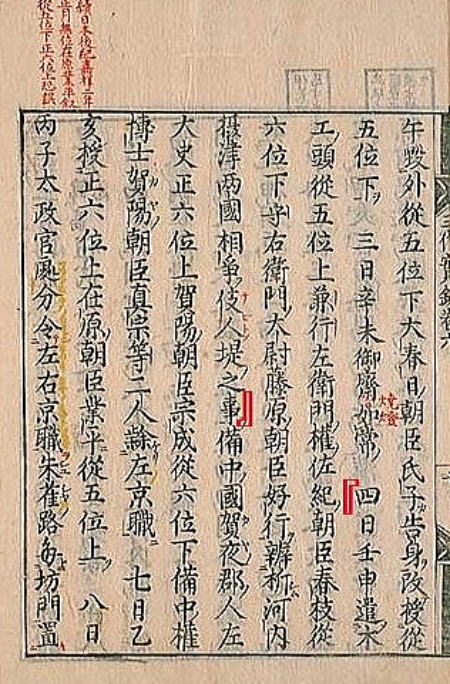 續日本後紀嘉祥二年
正月無位在原業平叙
從五位下正六位上恐誤
午毀外從五位下大春日朝臣氏子告身改授從
五位下 三日辛未御齋如常 『四日壬申遣木
工頭從五位上兼行左衛門權佐紀朝臣春枝從
六位下守右衛門大尉藤原朝臣好行辨析河内
攝津兩國相爭伎人堤之事』備中國賀夜郡人左
大史正六位上賀陽朝臣宗成從六位下備中權
博士賀陽朝臣真宗等二人隸左京職 七日乙
亥授正六位上在原朝臣業平從五位上 八日
丙子太政官處分令左右京職朱雀路每坊門置